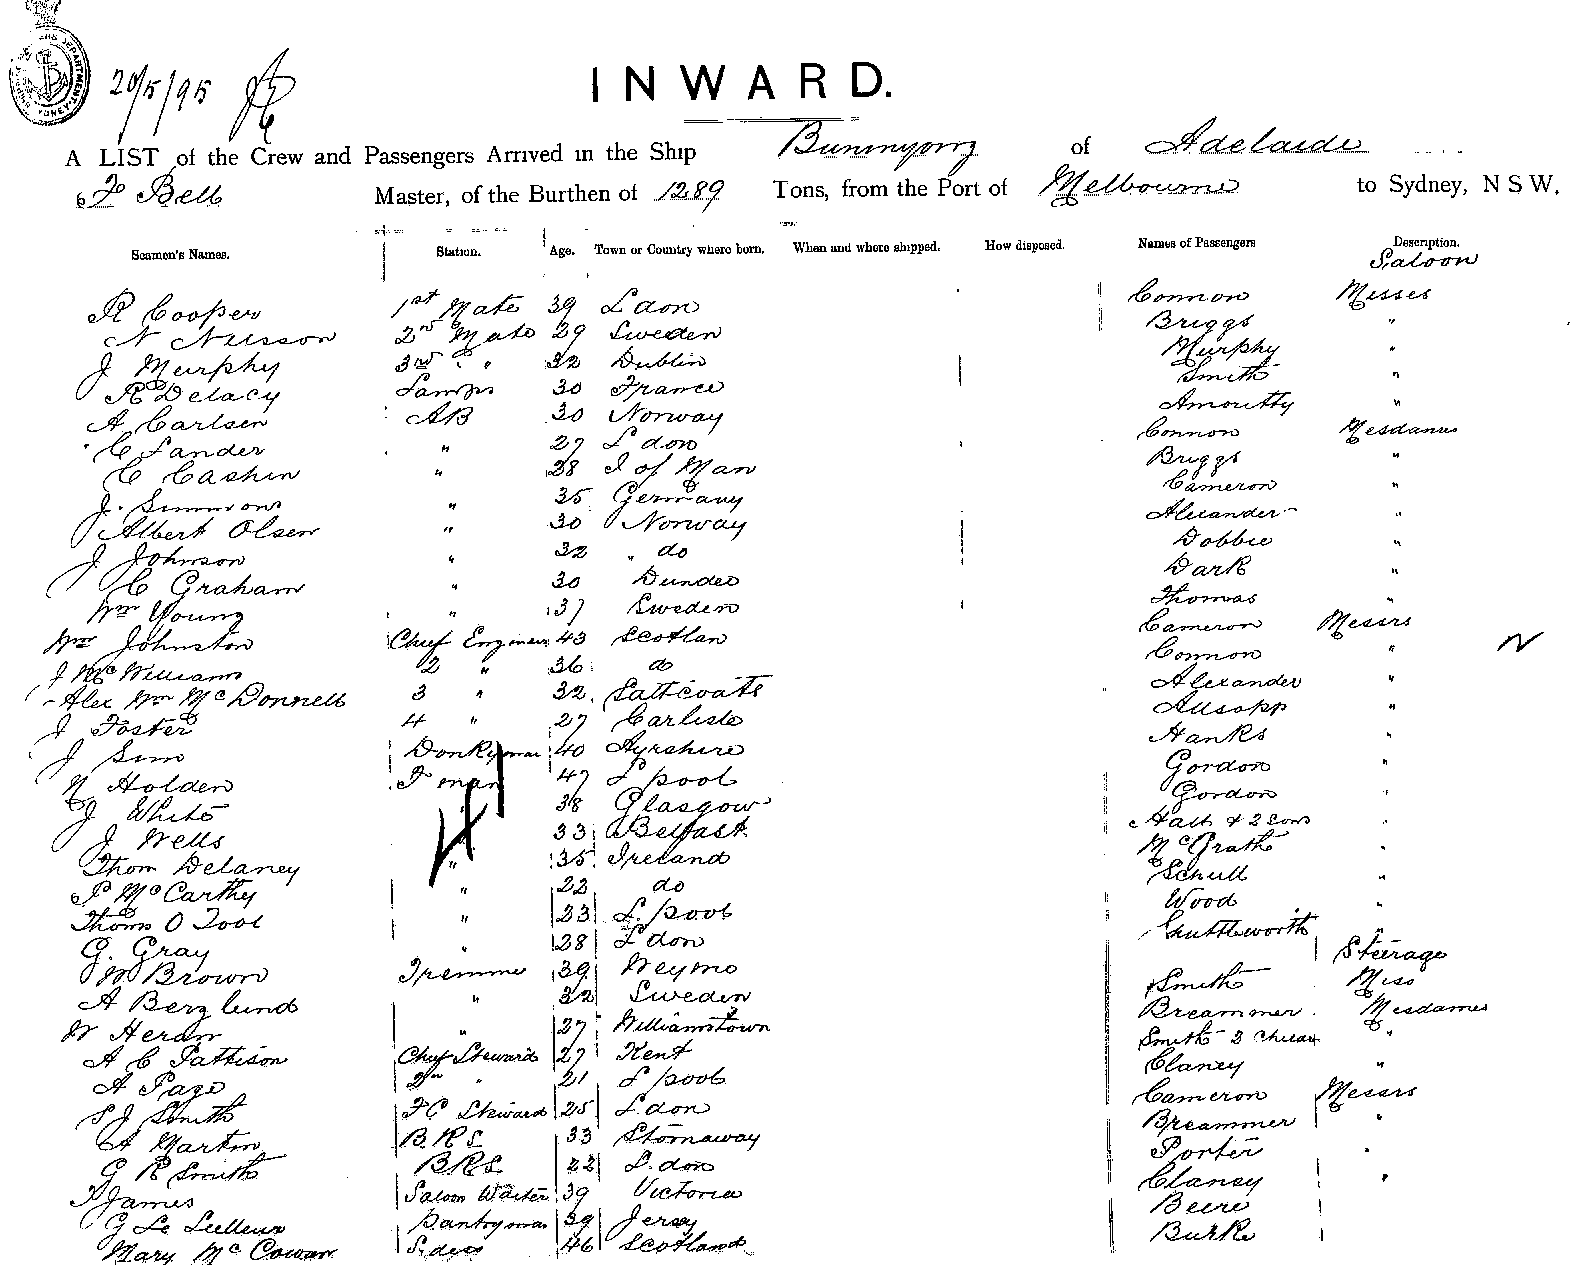 20/5/95
INWARD.
A LIST of the Crew and Passengers Arrived in the Ship Buninyong of Adelaide
F Bell Master, of the Burthen of 1289 Tons, from the Port of Melbourne to Sydney, N S W,
Seamen's Names. Station. Age. Town or Country where born. When and where shipped. How disposed. Names of Passengers Description.
Saloon
R Cooper 1st Mate 39 L don Connon Misses
N Nilsson 2nd Mate 29 Sweden Briggs "
J Murphy 3rd " " 32 Dublin Murphy "
R Delacy Lamps 30 France Smith "
A Carlsen AB 30 Norway Amoretty "
C Lander " 27 L don Connon Mesdames
C Cashin " 38 I of Man Briggs "
J. Simmons " 35 Germany Cameron "
Albert Olsen " 30 Norway Alexander "
J Johnson " 32 " do Dobbie "
C Graham " 30 Dundee Dark "
Wm Young " 37 Sweden Thomas "
Wm Johnston Chief Engineer 43 Scotlan Cameron Messrs
J McWilliams 2 " 36 do Connon "
Alex Wm McDonnell 3 " 32 Saltcoats Alexander "
J Foster 4 " 27 Carlisle Allsopp "
J Sim Donkeyman 40 Ayrshire Hanks "
N Holden F man 47 L pool Gordon "
J White 38 Glasgow Gordon "
J Wells 33 Belfast Hall & 2 Sons "
Thom Delaney " 35 Ireland McGrath "
P McCarthy " 22 do Schull "
Thom O Tool " 23 L. pool Wood "
G. Gray " 28 L don Shuttleworth
Steerage
W Brown Tremmer 39 Weymo Smith Miss
A Berglund " 32 Sweden Breammer Mesdames
W Heram " 27 Williamstown Smith 3 Children "
A C Pattison Chief Steward 27 Kent Clancy "
A Page 2nd " 21 L pool Cameron Messrs
S J Smith FC Steward 25 L don Breammer "
A Martin B.R.S 33 Stornaway Porter "
G R Smith BRS 22 L. don Clancy "
James Saloon Waiter 39 Victoria Beere
G Le Lielleur Pantryman 39 Jersey Burke
Mary McCowan S. dess 46 Scotland